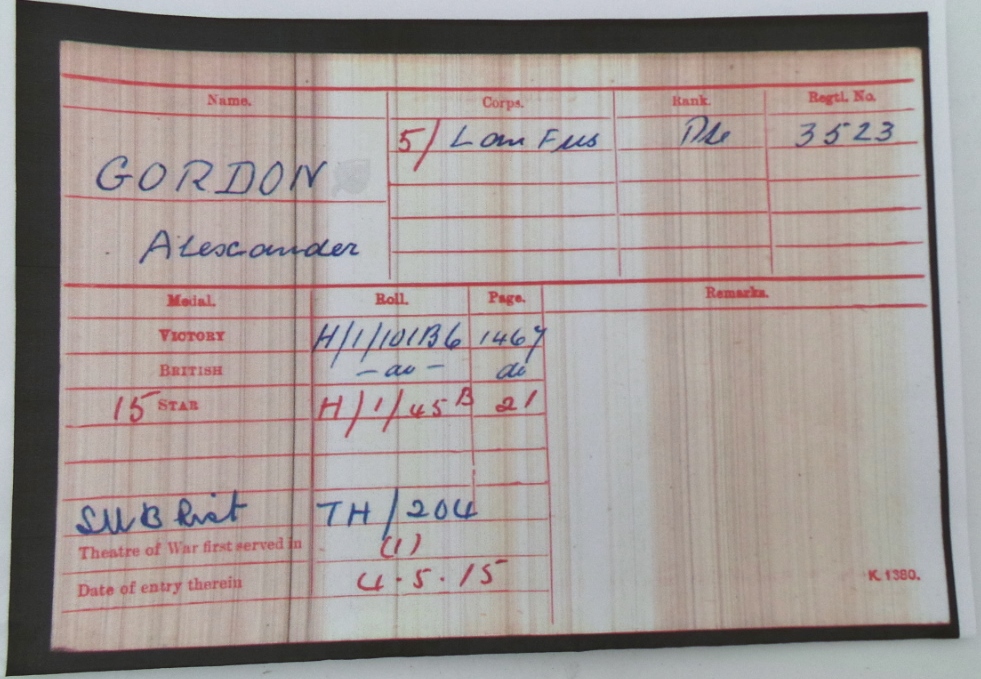 Name. Corps. Rank. Regtl. No.
5/ Lan Fus Pte 3523
GORDON
Alexander
Medal. Roll. Page. Remarks.
VICTORY H/1/101B6 1467
BRITISH - do - do
15 STAR H/1/45B 21
SWB List TH/204
Theatre of War first served in (1)
Date of entry therein 4.5.15
K. 1380.